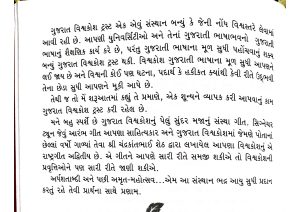 ગુજરાત વિશ્વકોશ ટ્રસ્ટ એક એવું સંસ્થાન બન્યું કે જેની નોંધ વિશ્વસ્તરે લેવામાં
આવી રહી છે. આપણી યુનિવર્સિટીઓ અને તેનાં ગુજરાતી ભાષાભવનો ગુજરાતી
ભાષાનું શૈક્ષણિક કાર્ય કરે છે, પરંતુ ગુજરાતી ભાષાના મૂળ સુધી પહોંચવાનું શક્ય
બન્યું ગુજરાત વિશ્વકોશ ટ્રસ્ટ થકી. વિશ્વકોશ ગુજરાતી ભાષાના મૂળ સુધી આપણને
લઈ જાય છે અને વિશ્વની કોઈ પણ ઘટના, પદાર્થ કે હકીકત ક્યાંથી કેવી રીતે ઉદ્ભવી
તેના છેડા સુધી આપણને મૂકી આપે છે.
તેથી જ તો મેં શરૂઆતમાં કહ્યું તે પ્રમાણે, એક શૂન્યને વ્યાપક કરી આપવાનું કામ
ગુજરાત વિશ્વકોશ ટ્રસ્ટ કરી રહેલ છે.
મને બહુ સ્પર્શે છે ગુજરાત વિશ્વકોશનું પેલું સુંદર મજાનું સંસ્થા ગીત. સિગ્નેચર
ટ્યૂન જેવું આરંભ ગીત આપણા સાહિત્યકાર અને ગુજરાત વિશ્વકોશમાં જેમણે પોતાનાં
છેલ્લાં વર્ષો ગાળ્યાં તેવા શ્રી ચંદ્રકાન્તભાઈ શેઠ દ્વારા લખાયેલ આપણા વિશ્વકોશનું એ
રાષ્ટ્રગીત અદ્વિતીય છે. એ ગીતને આપણે સારી રીતે સમજી શકીએ તો વિશ્વકોશની
પ્રવૃત્તિઓને પણ સારી રીતે જાણી શકીએ.
અર્ધશતાબ્દી અને પછી અમૃત-મહોત્સવ...એમ આ સંસ્થાન ભદ્ર આયુ સુધી પ્રદાન
કરતું રહે તેવી પ્રાર્થના સાથે પ્રણામ.